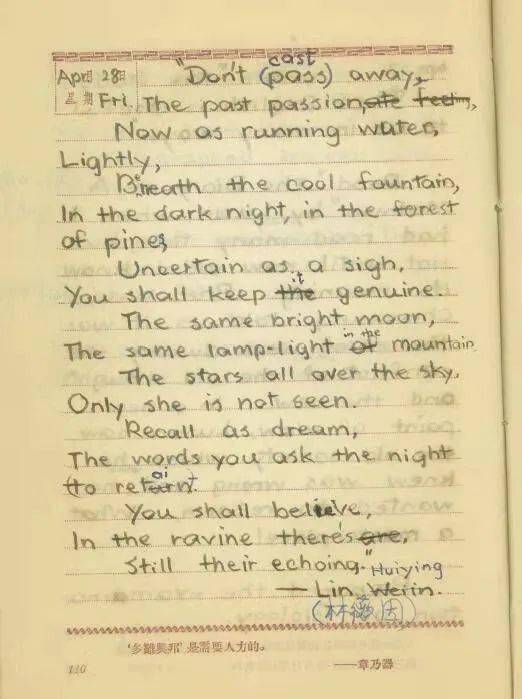 cast
April 28日 "Don't (pass) away,
星期 Fri. The past passion,ate feeling,
Now as running water,
Lightly,
Beneath the cool fountain,
In the dark night, in the forest
of pines,
Uncertain as a sigh,
it
You shall keep the genuine.
The same bright moon,
in the
The same lamp-light of mountain
The stars all over the sky,
Only she is not seen.
Recall as dream,
The words you ask the night
ai
(to return).
You shall believe,
In the ravine there's are,
Still their echoing."
Huiying
— Lin, Weiin.
(林徽因)
'多難興邦'是需要人力的。
110 ——章乃器